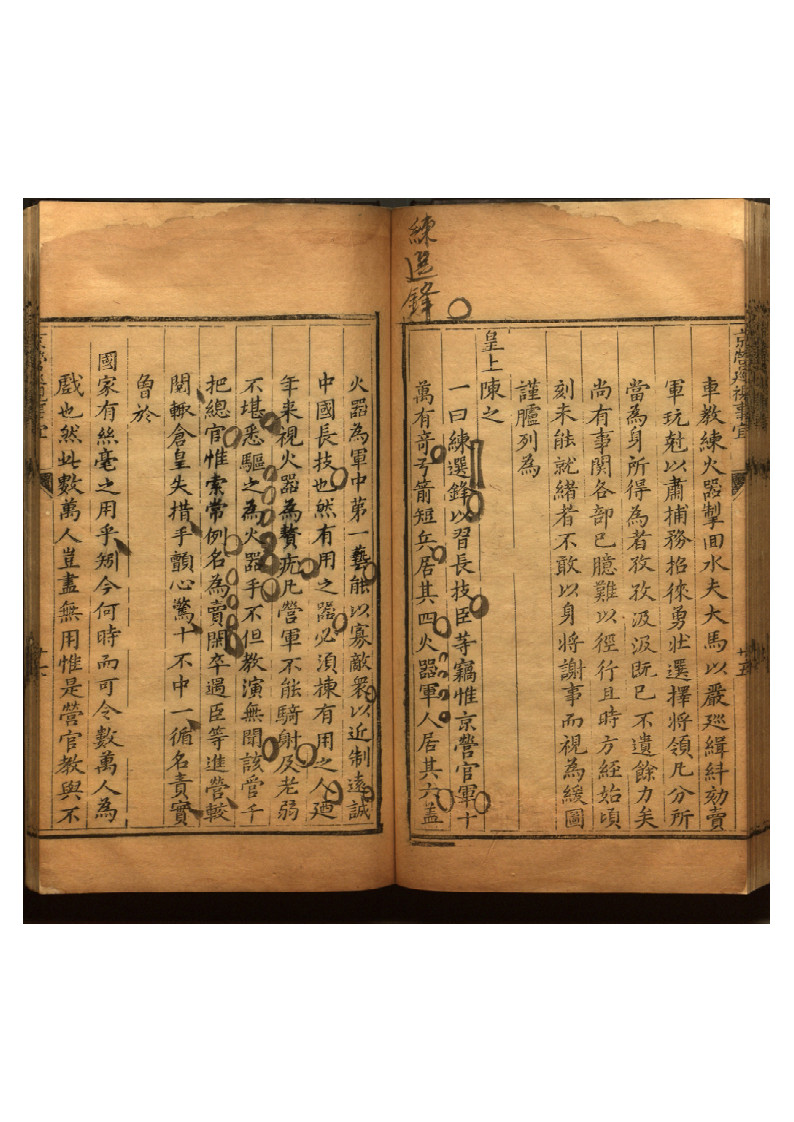 練選鋒
車教練火器掣回水夫大馬以嚴廵緝糾劾賣
軍玩尅以肅捕務招徠勇壯選擇將領凡分所
當為身所得為者孜孜汲汲既已不遺餘力矣
尚有事関各部已臆難以徑行且時方經始頃
刻未能就緒者不敢以身將謝事而視為緩圖
謹臚列為
皇上陳之
一曰練選鋒以習長技臣等竊惟京營官軍十
萬有竒弓箭短兵居其四火器軍人居其六盖
火器為軍中第一藝能以寡敵衆以近制遠誠
中國長技也然有用之器必須揀有用之人廼
年来視火器為贅疣凡營軍不能騎射及老弱
不堪悉驅之為火器手不但教演無聞該管千
把總官惟索常例名為賣閑卒遇臣等進營較
閱輙倉皇失措手顫心驚十不中一循名責實
曾於
國家有絲毫之用乎矧今何時而可令數萬人為
戲也然此數萬人豈盡無用惟是營官教與不